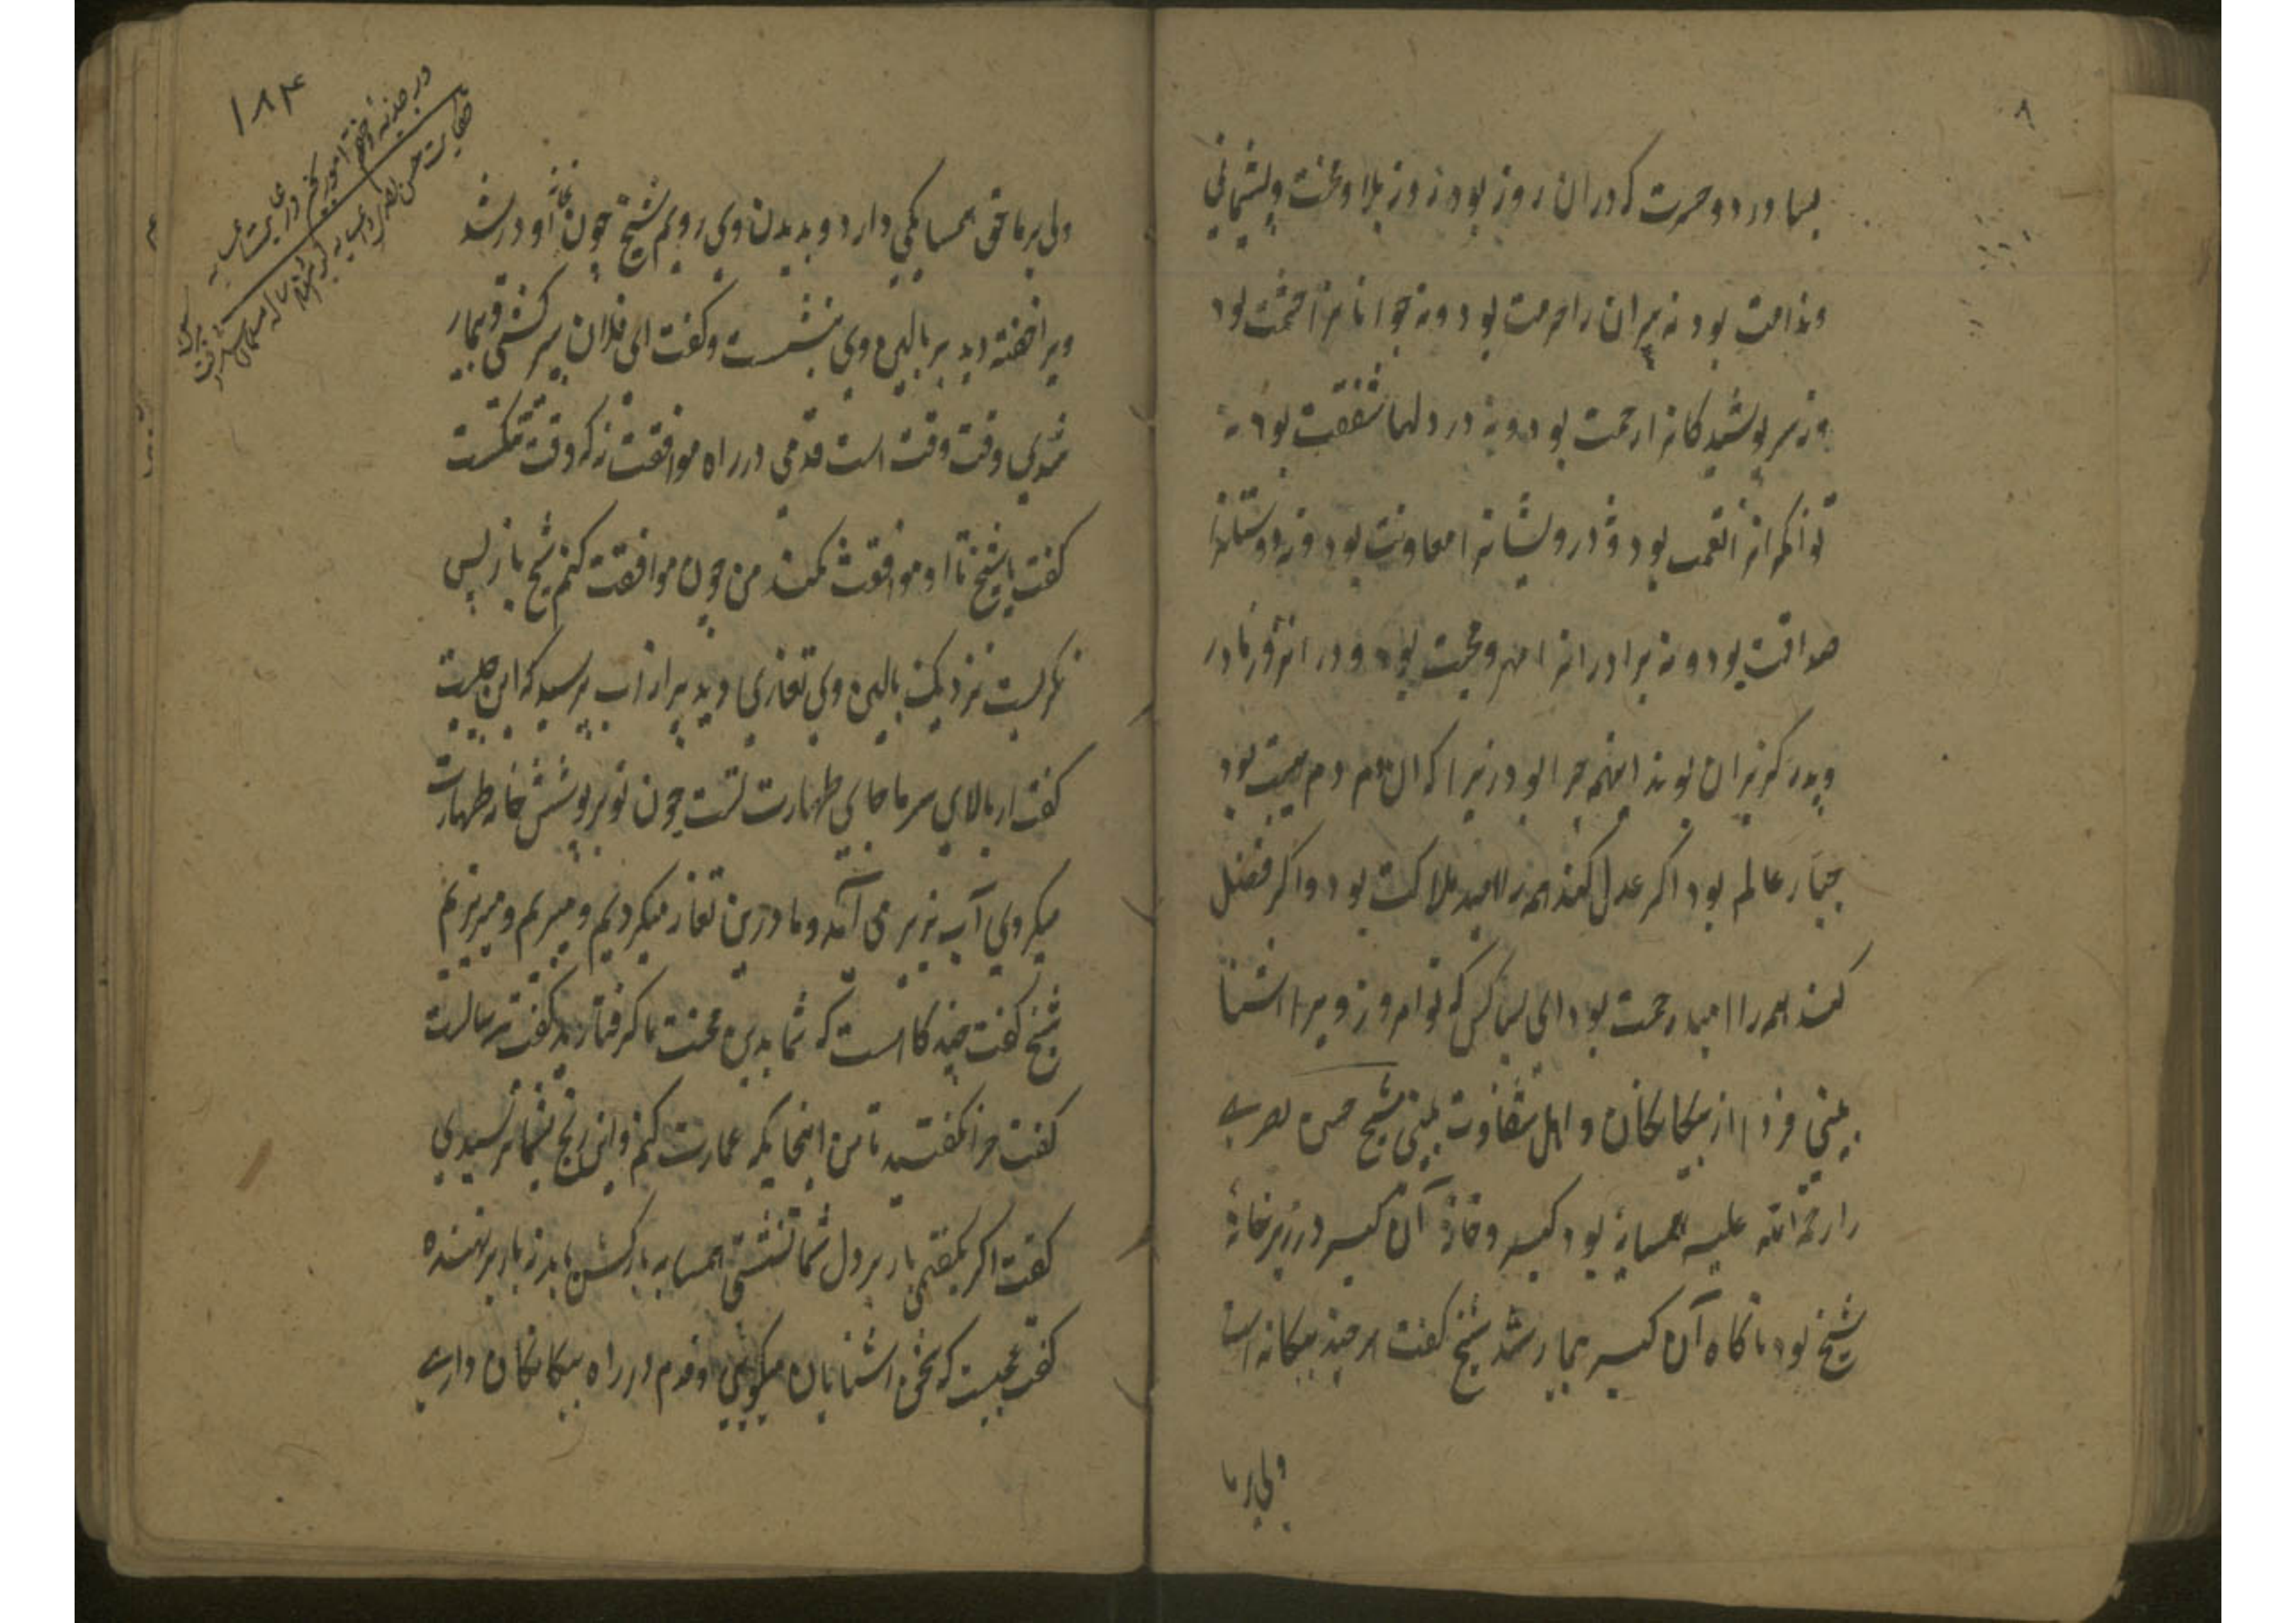 ۸
بسا درد و حسرت که دران روز بود زروز بلا و محنت و پشیمانی
وندامت بود نه پیران را حرمت بود و نه جوانانرا حشمت بود
ونه سرپوشیدکانرا رحمت بود و نه در دلها شفقت بود نه
توانکرانرا نعمت بود و نه درویشانرا معاونت بود و نه دوستانرا
صداقت بود و نه برادرانرا مهر و محبت بود و دران روز مادر
وپدر کریزان بوند اینهمه چرا بود زیرا که ان دم دم هیبت بود
جبار عالم بود اکر عدل کند همه را امید هلاکت بود و اکر فضل
کند همه را امید رحمت بود ای بسا کس که تو امروز ویرا اشنا
بینی فردا از بیکانکان و اهل شقاوت بینی شیخ حسن بصری
را رحمة الله علیه همسایهٔ بود کبر و خانهٔ آن کبر در زیر خانهٔ
شیخ بود ناکاه آن کبر بیمار شد شیخ کفت هر چند بیکانه است
ولی بر ما
۱۸۴
ولی بر ما حق همسایکی دارد و بدیدن وی رویم شیخ چون بخانهٔ او در شد
ویرا خفته دید بر بالین وی بنشست و کفت ای فلان پیر کشتی و بیمار
شدی وقت وقت است قدمی در راه موافقت نه که وقت تنکست
کفت یا شیخ تا او موافقت نکند من چون موافقت کنم شیخ باز پس
نکریست نزدیک بالین وی تغاری دید پر از آب پرسید که این چیست
کفت از بالای سر ما جای طهارت تست چون تو بر پوشش خانه طهارت
میکردی آب بزیر می آمد و ما درین تغار میکردیم و میبریم و میریزیم
شیخ کفت چند کاه است که شما بدین محنت ما کرفتارید کفت سی سالست
کفت چرا نکفتید تا من انجا یکه عمارت کنم و این رنج بشما نرسیدی
کفت اکر بکفتمی بار بر دل شما نشستی همسایه بارکش باید نه بار برنهنده
کفت عجبست که سخن اشنایان میکویی و قدم در راه بیکانکان داری